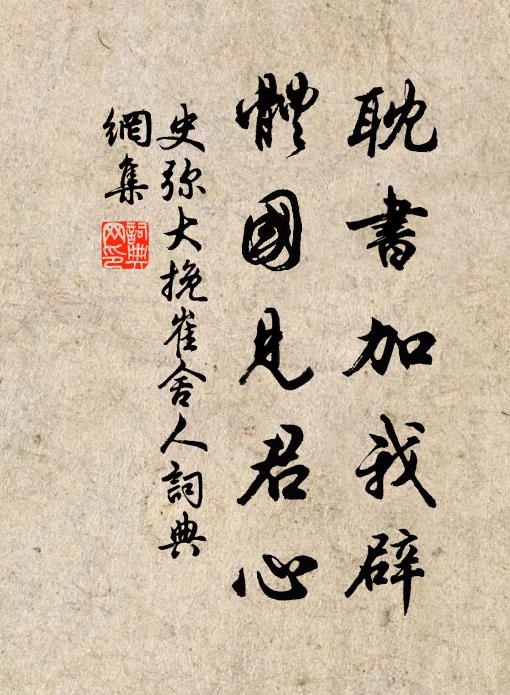 耽書加我辟
體國見君心
史弥大挽崔舍人詞典
網集
詞典網印